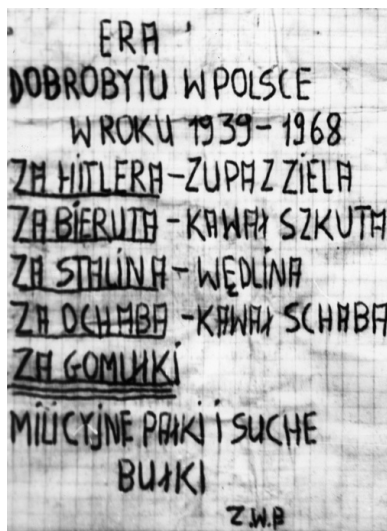 ERA
DOBROBYTU W POLSCE
W ROKU 1939-1968
ZA HITLERA - ZUPA Z ZIELA
ZA BIERUTA - KAWAŁ SZKUTA
ZA STALINA - WĘDLINA
ZA OCHABA - KAWAŁ SCHABA
ZA GOMUŁKI
MILICYJNE PAŁKI I SUCHE
BUŁKI
Z.W.B